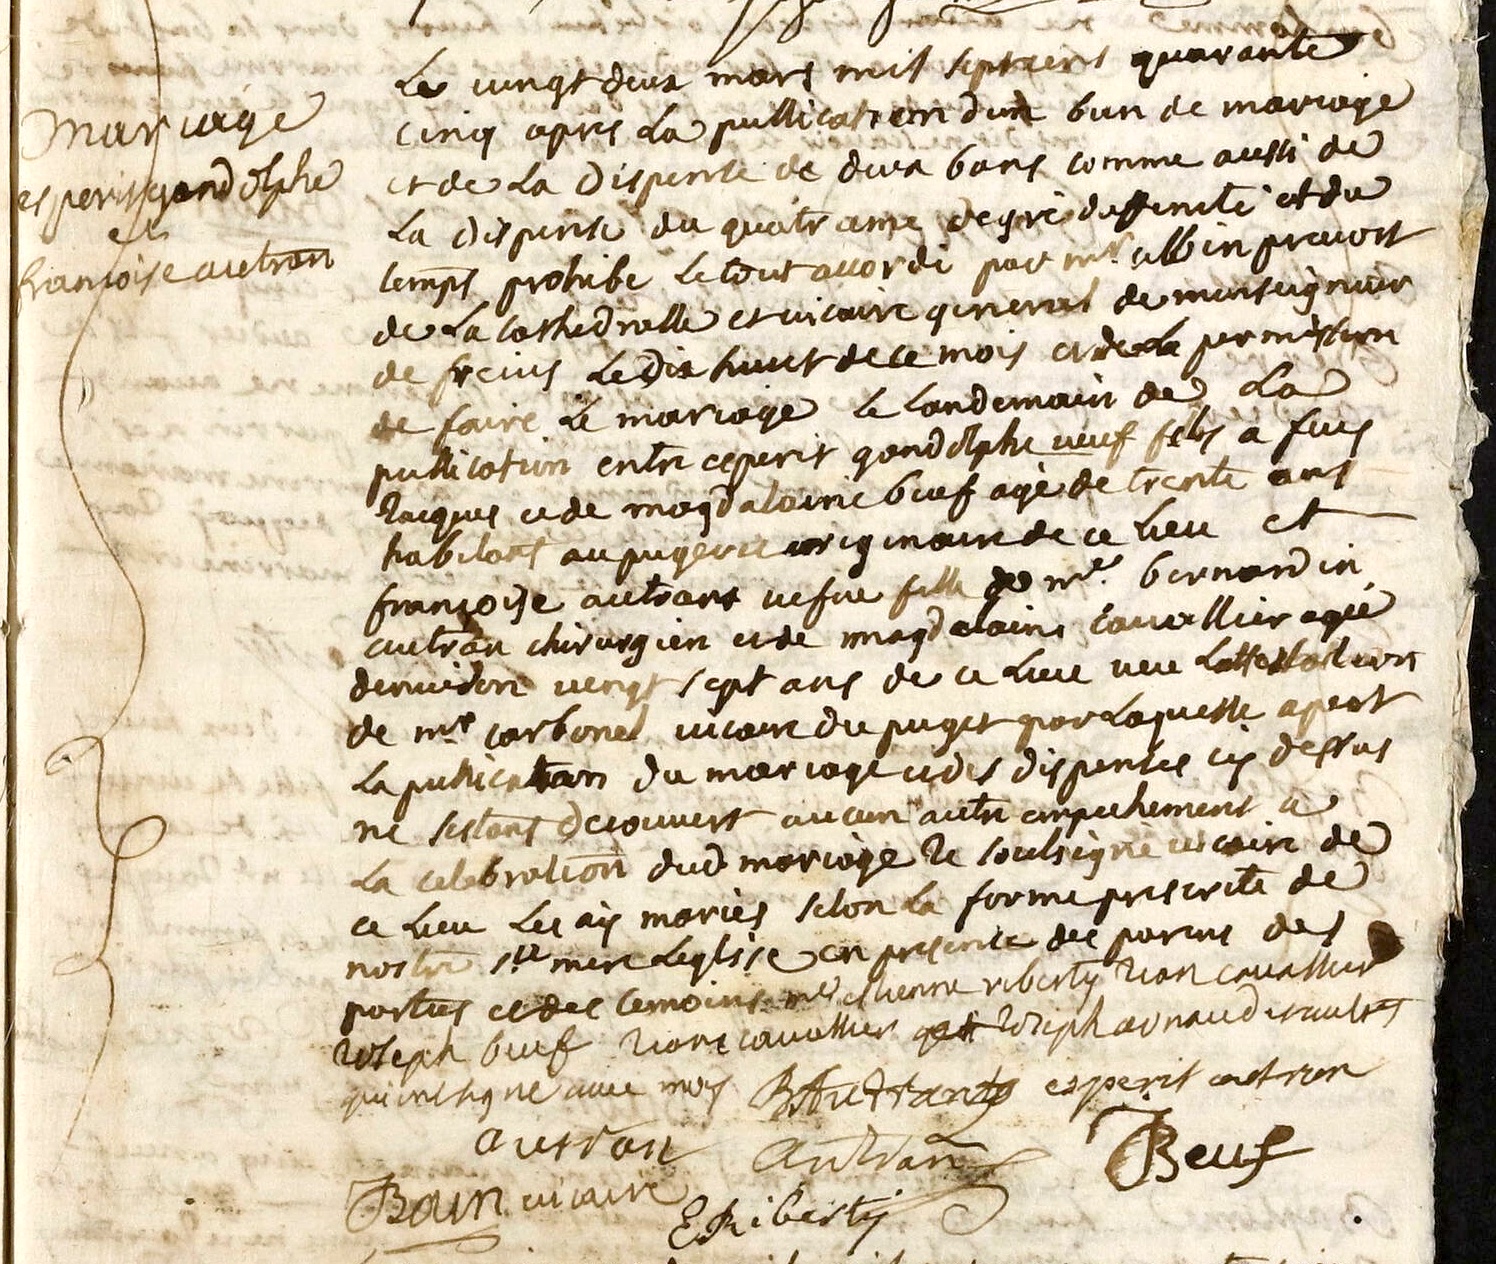 Le vingt deux mars mil septcens quarante
cinq apres La publication dun ban de mariage
et de La dispense de deux bans comme aussi de
La dispense du quatrieme degré daffinité et du
temps prohibe Le tout accordé par mr. albin prevost
de La cathedralle et vicaire general de monseigneur
de freius Le dix huict de ce mois et de La permission
de faire Le mariage Le Landemain de La
publication entre esperit gandolphe veuf fils a feus
Jacques et de magdaleine beuf agé de trente ans
habitant au puget et originaire de ce Lieu et
françoise autrane vefve fille de mre. bernardin
autran chirurgien et de magdelaine cavallier agée
denviron vingt sept ans de ce Lieu veu Lattestation
de mre carbonel vicaire du puget par Laquelle apert
La publication du mariage et des dispenses cy dessus
ne sestant decouvert aucun autre empechement a
La celebration dud mariage Je soulsigné vicaire de
ce Lieu Les ay mariés selon La forme prescrite de
nostre ste mere Leglise en presence des parens des
parties et des temoins mre estienne riberty Jean cavallier
Joseph beuf Jean cavallier Joseph arnaud et autres
qui ont signé avec moy BAuttrant esperit autran
autran Autran Beuf
Bain vicaire E Riberty
mariage
esperit gandolphe
et
françoise autran